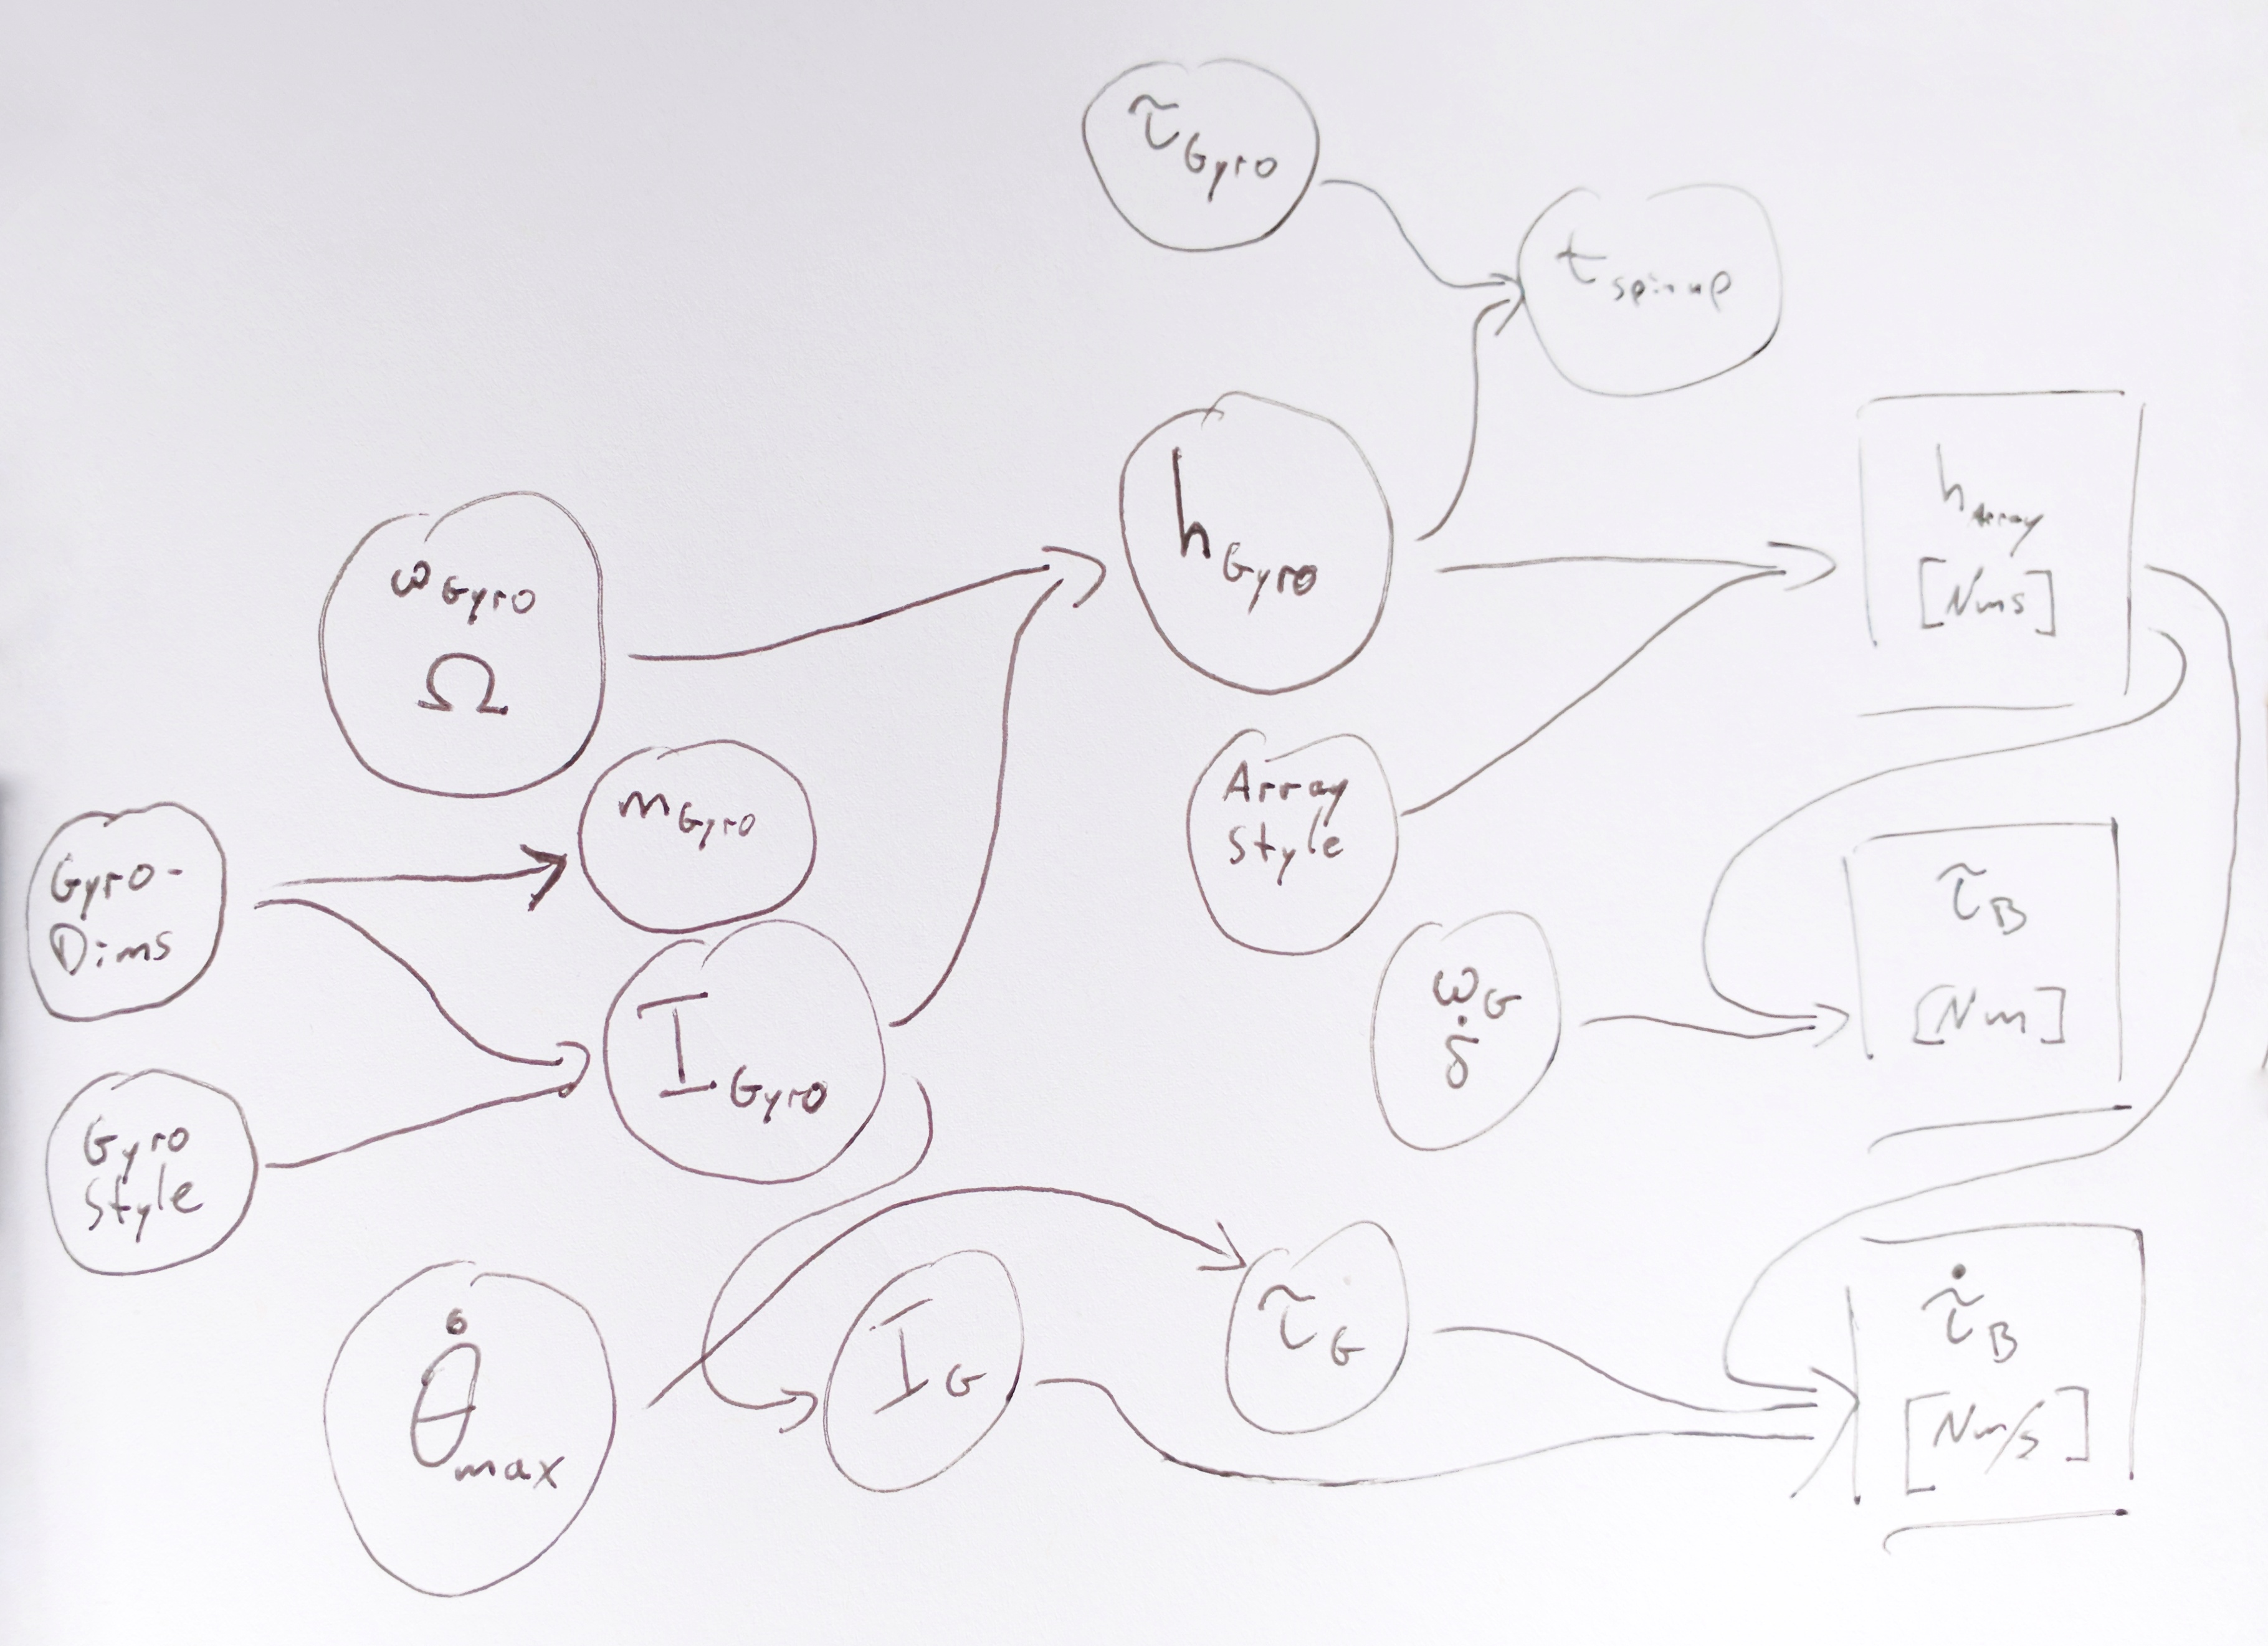 τ_Gyro
t_spinup
h_Gyro
h_Array
[Nms]
ω_Gyro
Ω
m_Gyro
Array
Style
Gyro-
Dims
τ_B
[Nm]
ω_G
δ̇
I_Gyro
Gyro
Style
τ_G
τ̇_B
[Nm/s]
I_G
θ̇_max